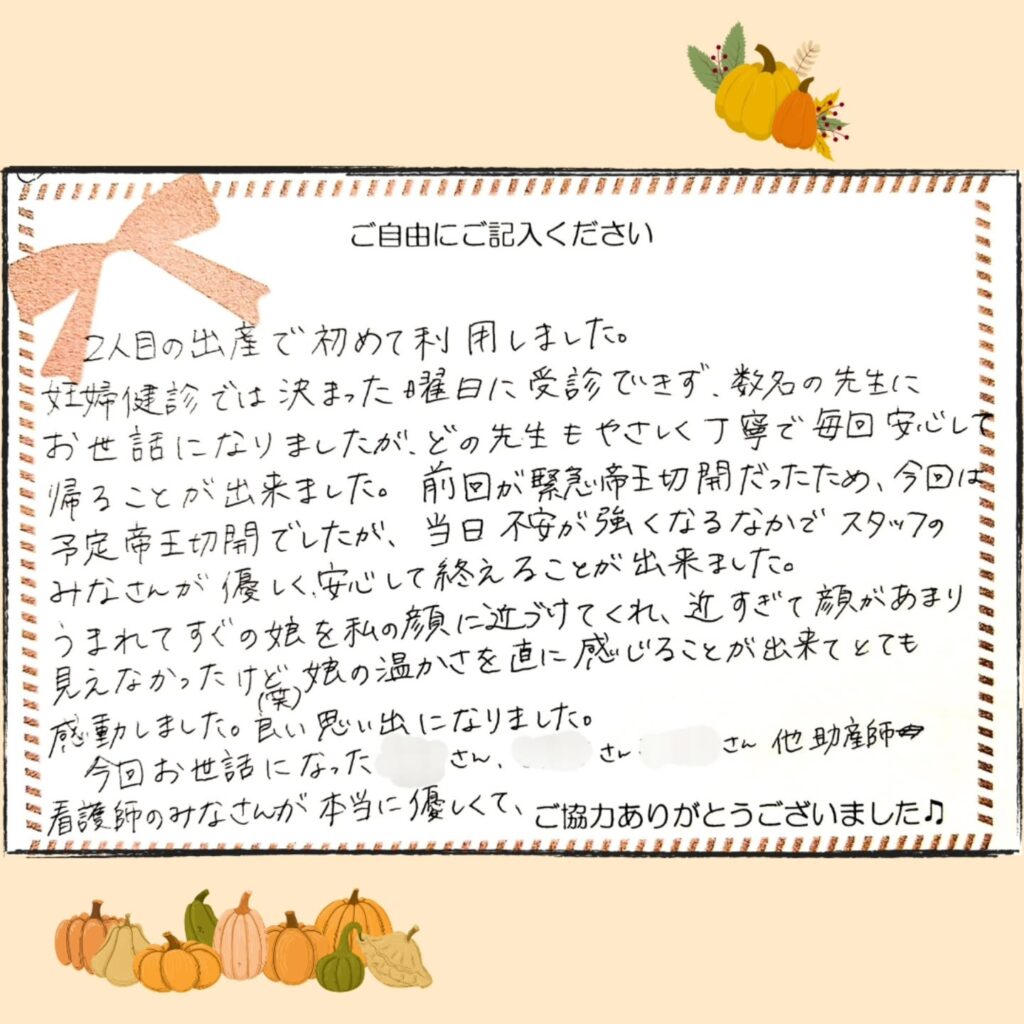 ご自由にご記入ください
2人目の出産で初めて利用しました。
妊婦健診では決まった曜日に受診できず、数名の先生に
お世話になりましたが、どの先生もやさしく丁寧で毎回安心して
帰ることが出来ました。前回が緊急帝王切開だったため、今回は
予定帝王切開でしたが、当日不安が強くなるなかでスタッフの
みなさんが優しく、安心して終えることが出来ました。
うまれてすぐの娘を私の顔に近づけてくれ、近すぎて顔があまり
見えなかったけど(笑)娘の温かさを直に感じることが出来てとても
感動しました。良い思い出になりました。
今回お世話になった さん、 さん さん 他助産師
看護師のみなさんが本当に優しくて、
ご協力ありがとうございました♫